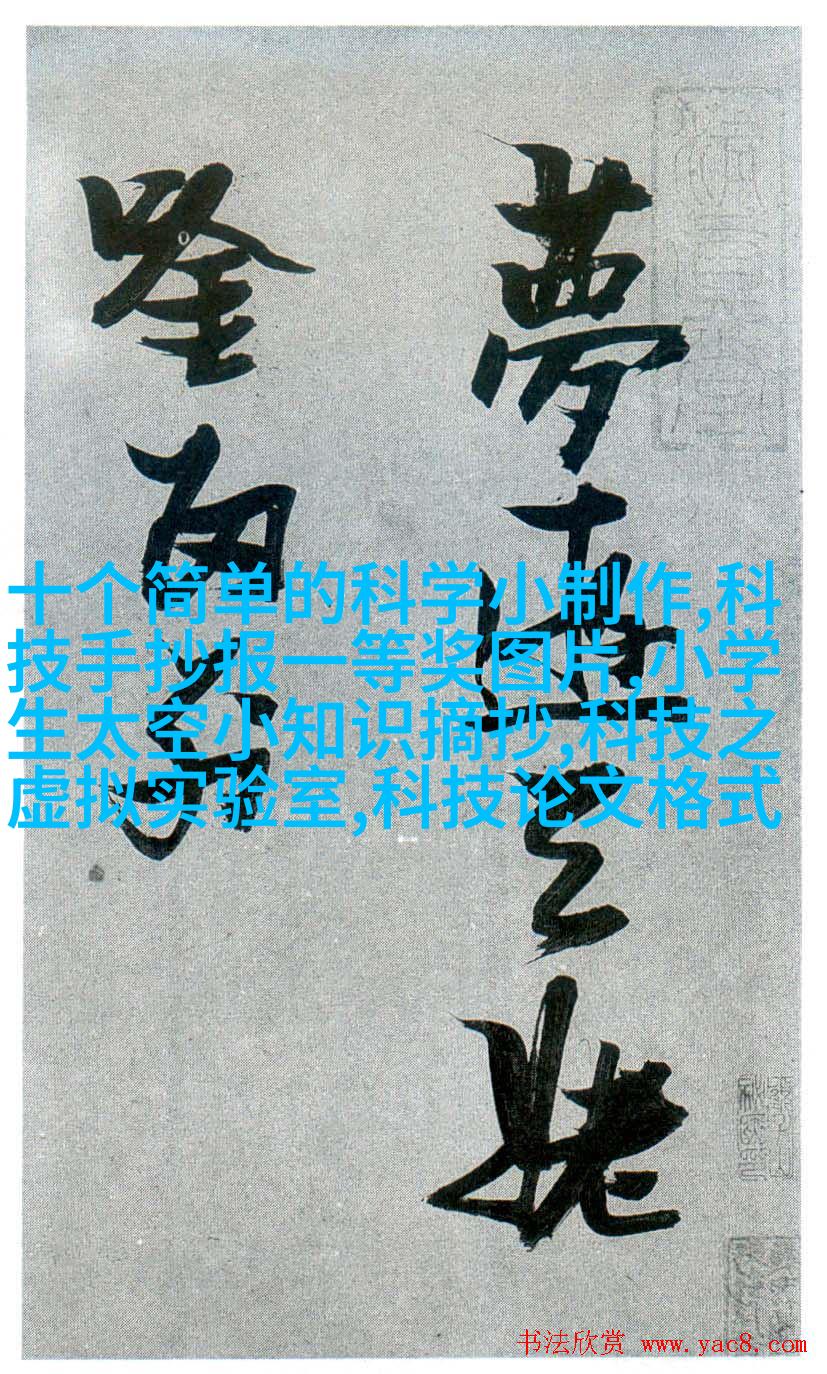 夢遊天姥
唫
十个简单的科学小制作,科
技手抄报一等奖图片,小学
生太空小知识摘抄,科技之
虚拟实验室,科技论文格式
书法欣赏 www.yac8.com